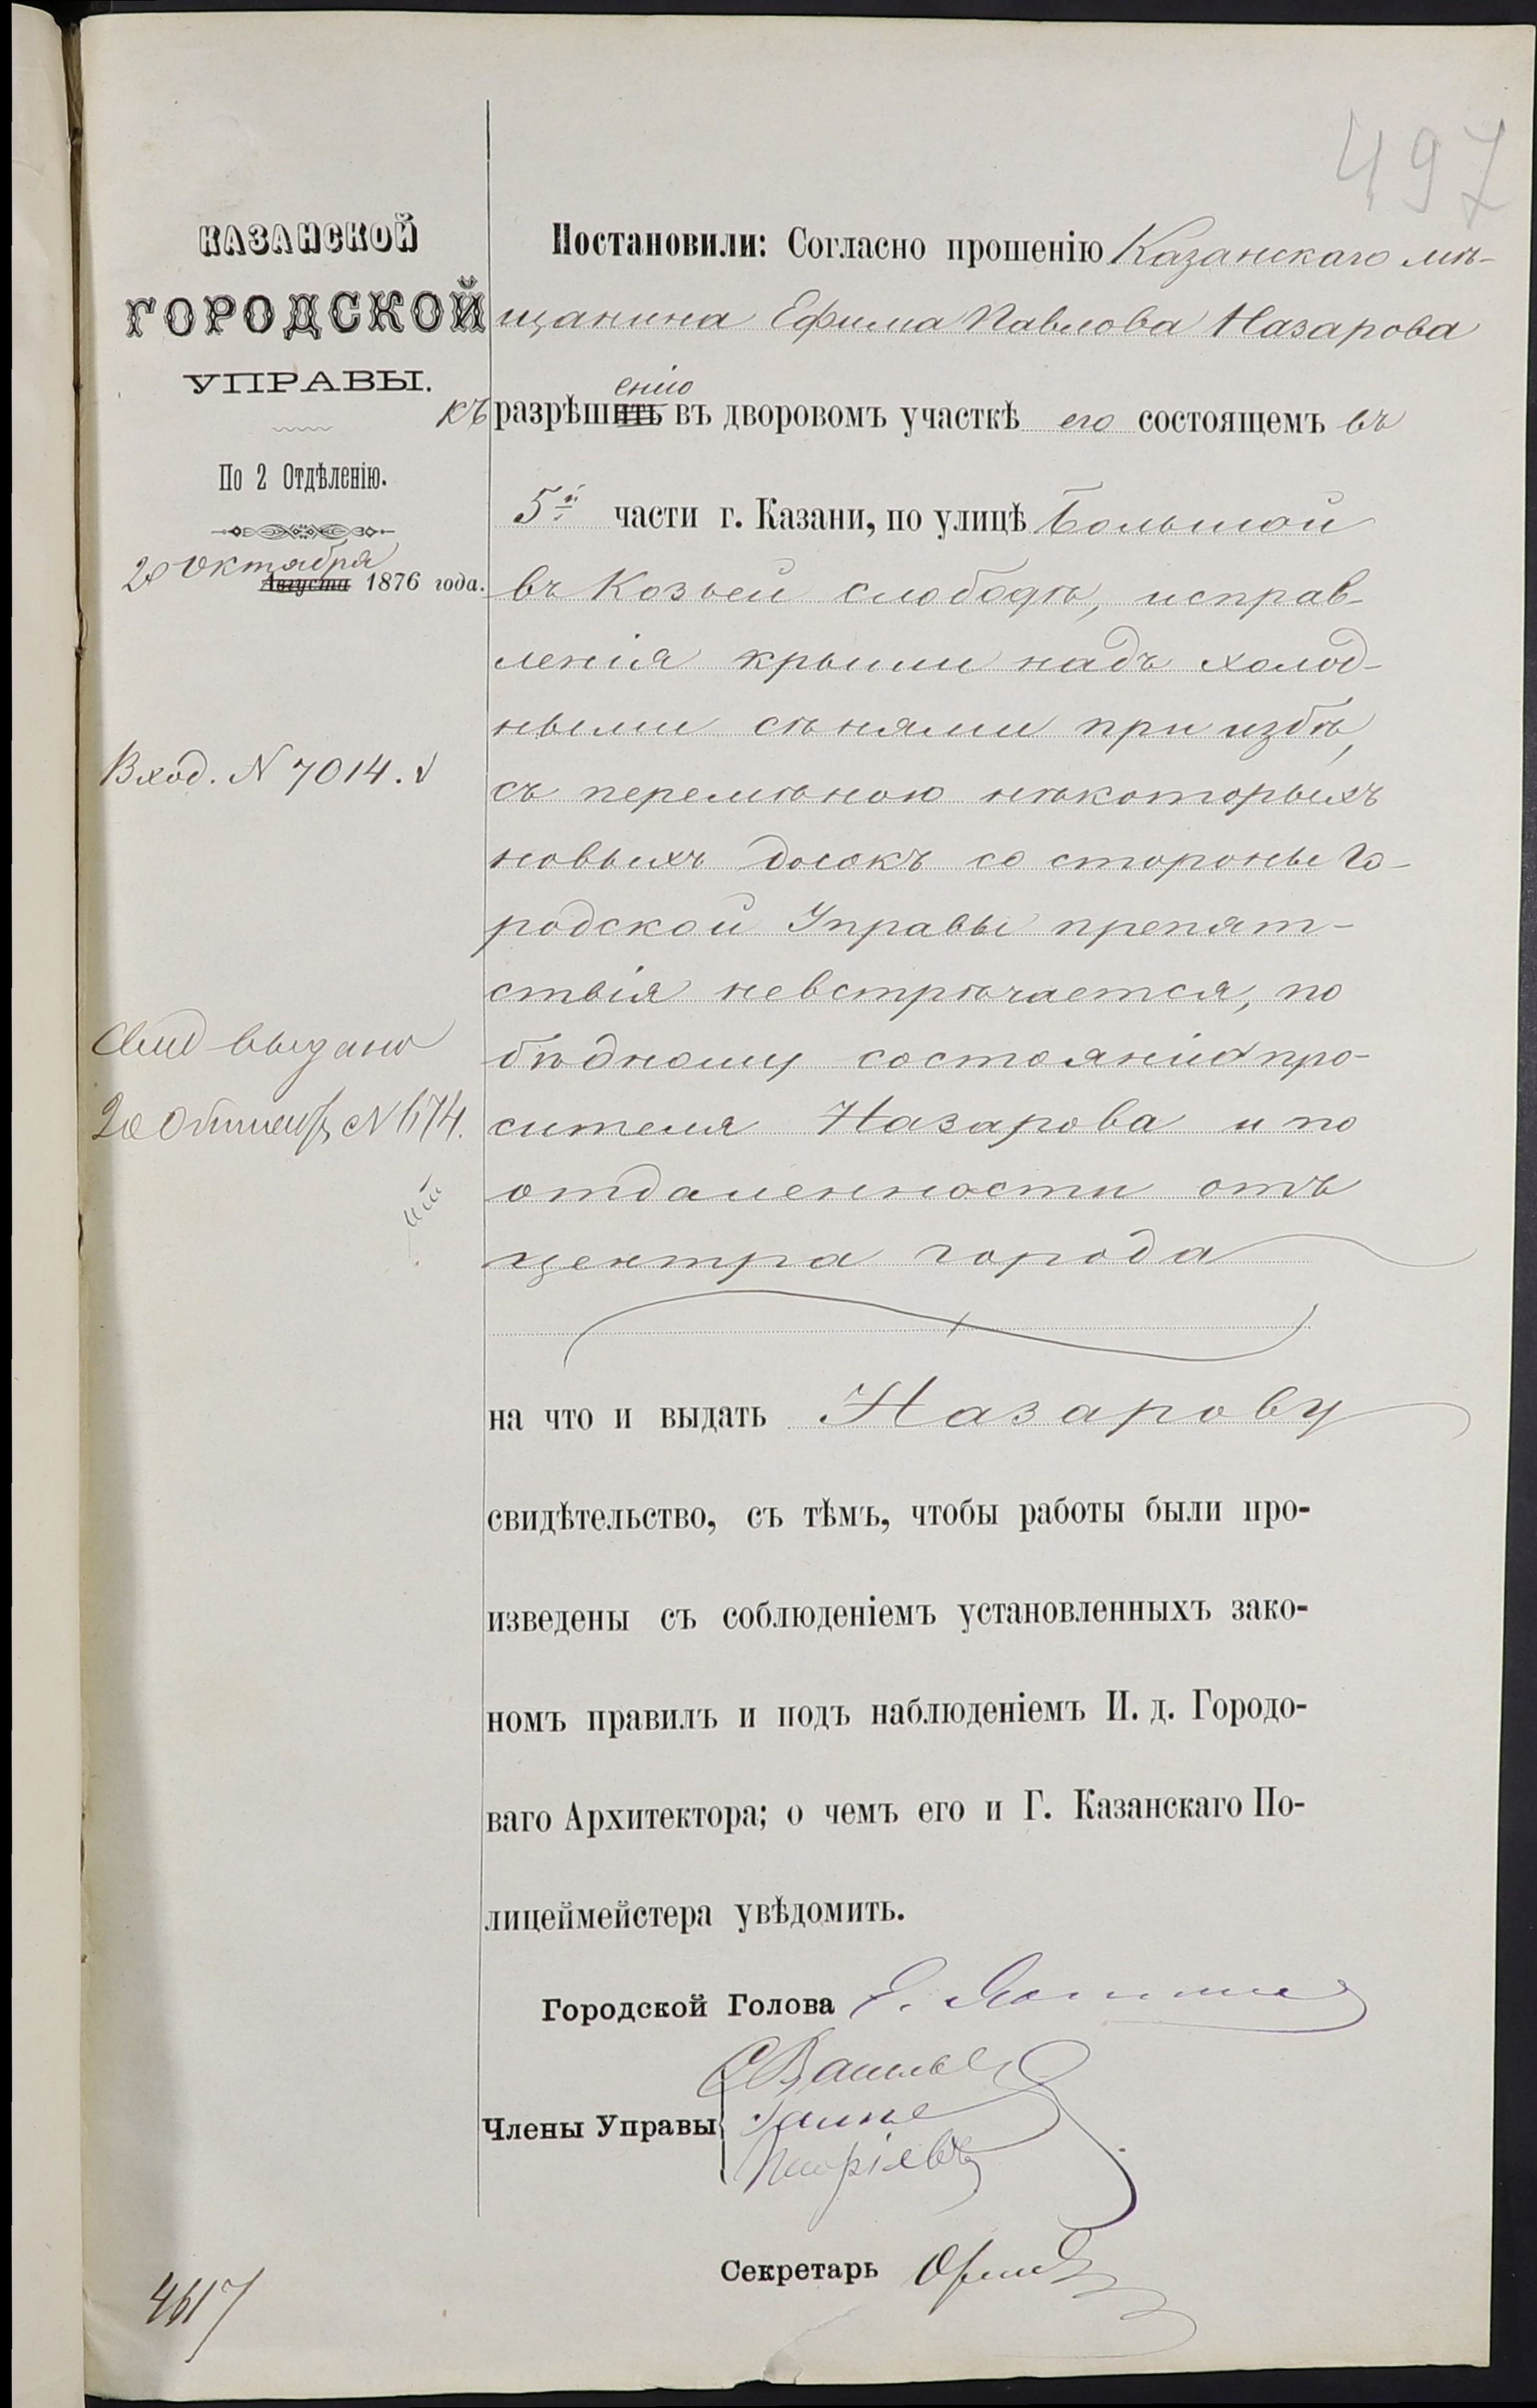 497
КАЗАНСКОЙ
ГОРОДСКОЙ
УПРАВЫ.
По 2 Отдѣленію.
20 Октября
Августа 1876 года.
Вход. N 7014.
выдано
20 N 1674.
Постановили: Согласно прошенію Казанскаго мѣ-
щанина Ефима Павлова Назарова
къ разрѣшить енію въ дворовомъ участкѣ его состоящемъ въ
5й части г. Казани, по улицѣ Большой
въ Козьей слободѣ, исправ-
ленія крыши надъ холод-
ными сѣнями при избѣ,
съ перемѣною нѣкоторыхъ
новыхъ досокъ со стороны Го-
родской Управы препят-
ствія невстрѣчается, по
бѣдному состоянію про-
сителя Назарова и по
отдаленности отъ
центра города
на что и выдать Назарову
свидѣтельство, съ тѣмъ, чтобы работы были про-
изведены съ соблюденіемъ установленныхъ зако-
номъ правилъ и подъ наблюденіемъ И. д. Городо-
ваго Архитектора; о чемъ его и Г. Казанскаго По-
лицеймейстера увѣдомить.
Городской Голова
Члены Управы
Секретарь
4617